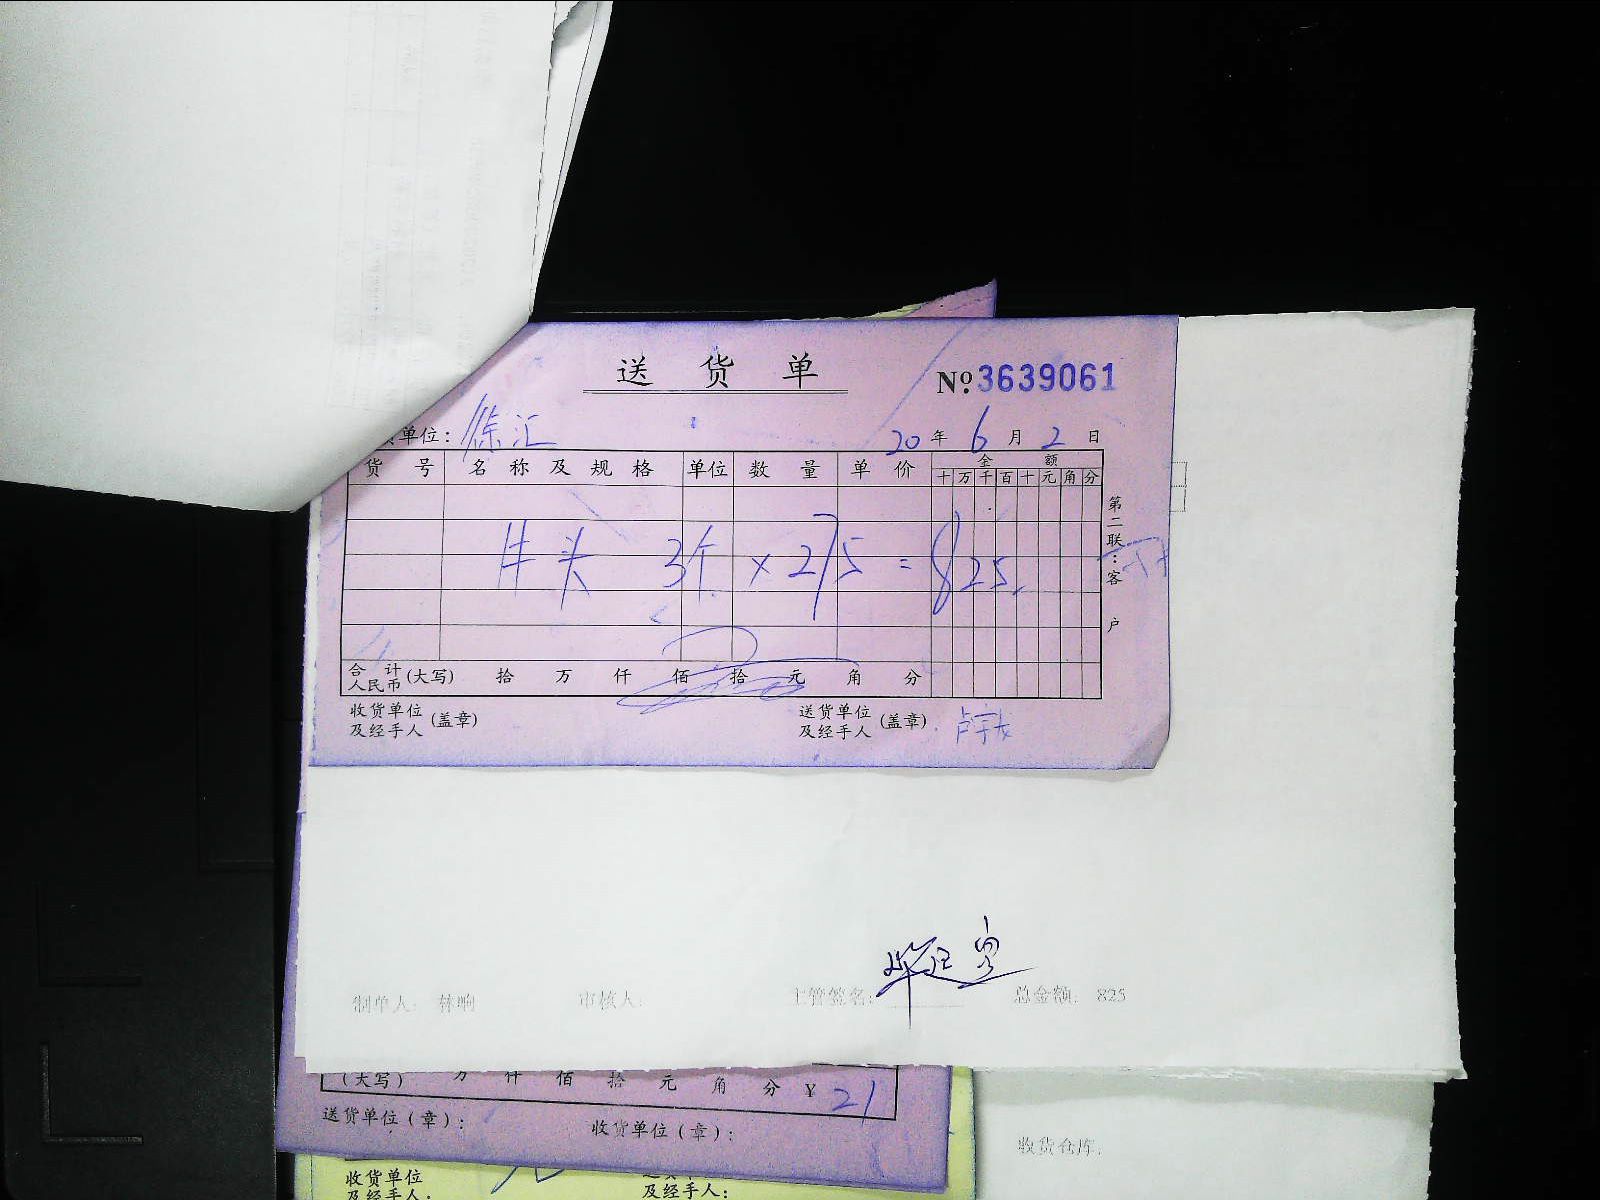 送货单
No.3639061
单位: 徐汇 20年6月2日
货号 名称及规格 单位 数量 单价 金额
十万千百十元角分
牛头 3个 × 275 = 825.
第二联:客户
合计人民币(大写) 拾 万 仟 佰 拾 元 角 分
收货单位及经手人(盖章) 送货单位及经手人(盖章)
制单人: 林响 审核人: 主管签名: 总金额: 825
(大写) 万 仟 佰 拾 元 角 分 ¥ 21
送货单位(章): 收货单位(章):
收货仓库:
收货单位
及经手人: 及经手人: